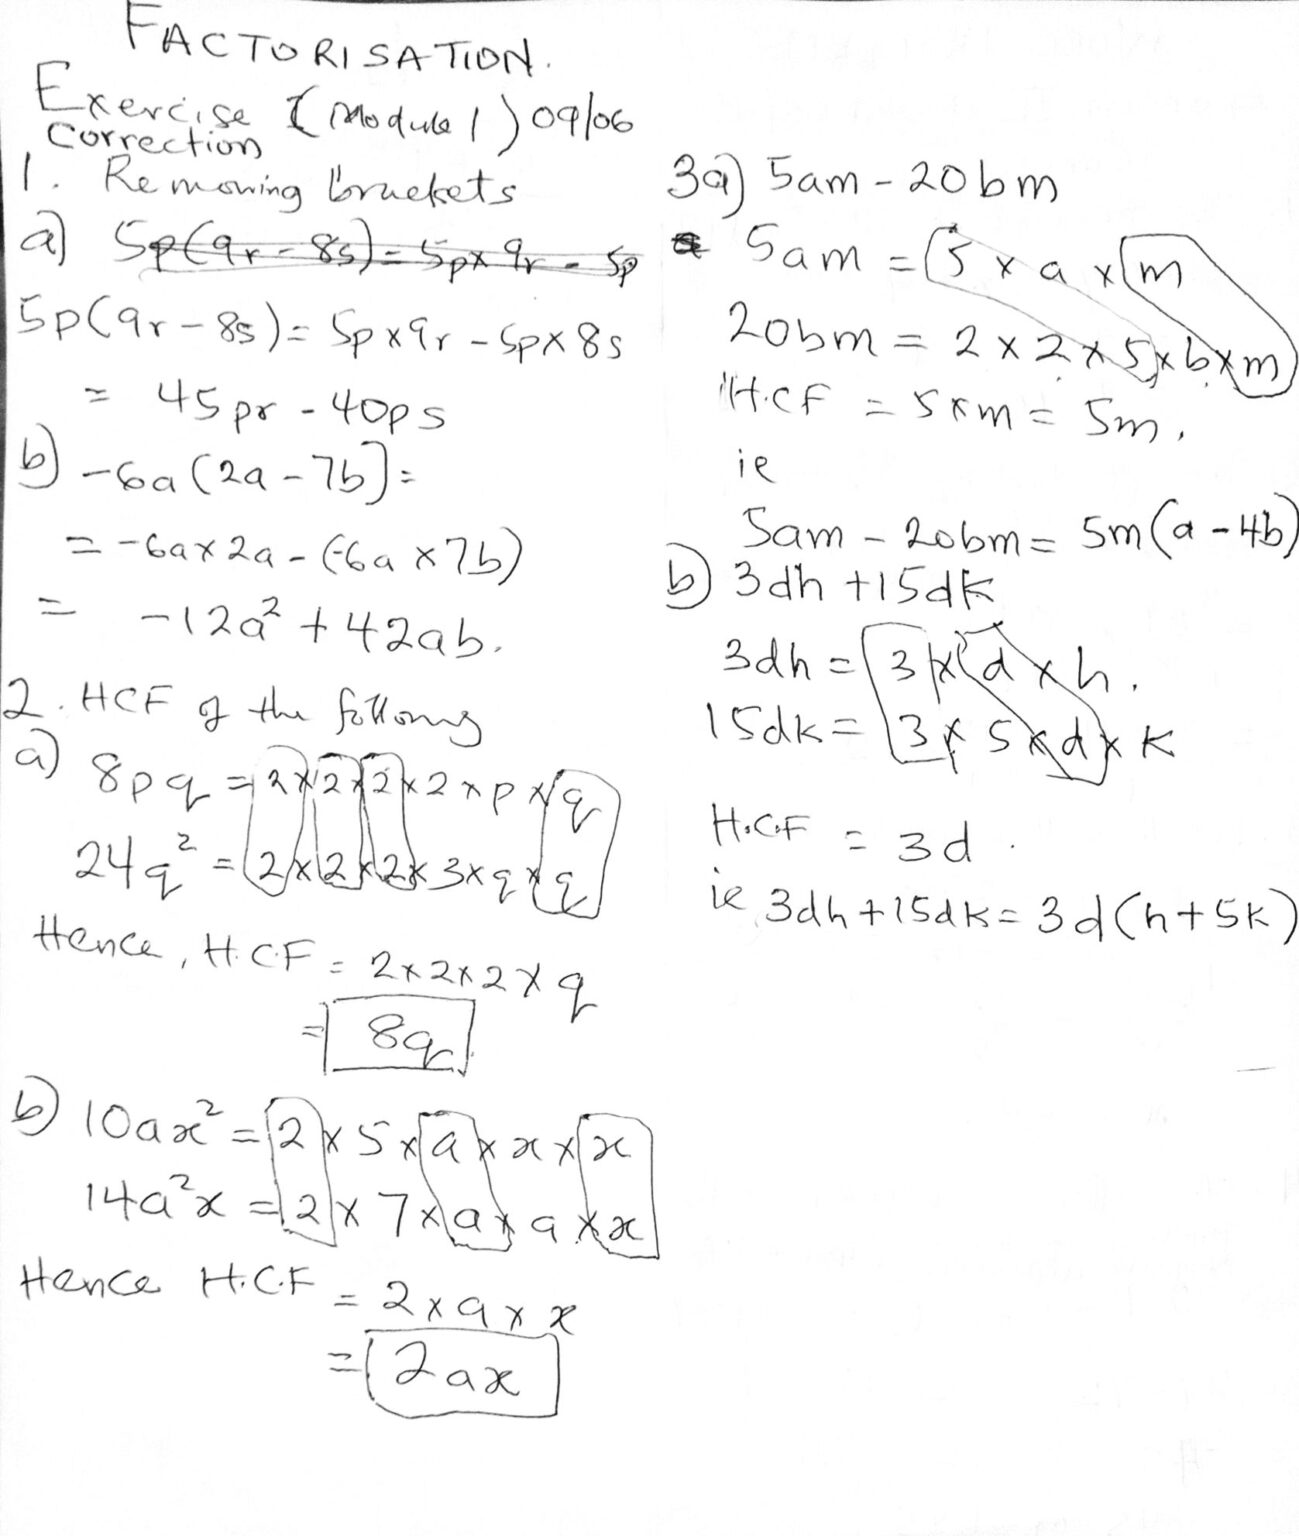 FACTORISATION.
Exercise I (Module 1) 09/06
Correction
1. Removing brackets
a) 5p(9r - 8s) = 5p x 9r - 5p
5p(9r - 8s) = 5p x 9r - 5p x 8s
= 45pr - 40ps
b) -6a(2a - 7b) =
= -6a x 2a - (-6a x 7b)
= -12a² + 42ab.
2. HCF of the following
a) 8pq = 2 x 2 x 2 x 2 x p x q
24q² = 2 x 2 x 2 x 3 x q x q
Hence, H.C.F = 2 x 2 x 2 x q
= 8q
b) 10ax² = 2 x 5 x a x x x x
14a²x = 2 x 7 x a x a x x
Hence H.C.F = 2 x a x x
= 2ax
3a) 5am - 20bm
5am = 5 x a x m
20bm = 2 x 2 x 5 x b x m
H.C.F = 5 x m = 5m.
ie
5am - 20bm = 5m(a - 4b)
b) 3dh + 15dk
3dh = 3 x d x h.
15dk = 3 x 5 x d x k
H.C.F = 3d.
ie 3dh + 15dk = 3d(h + 5k)